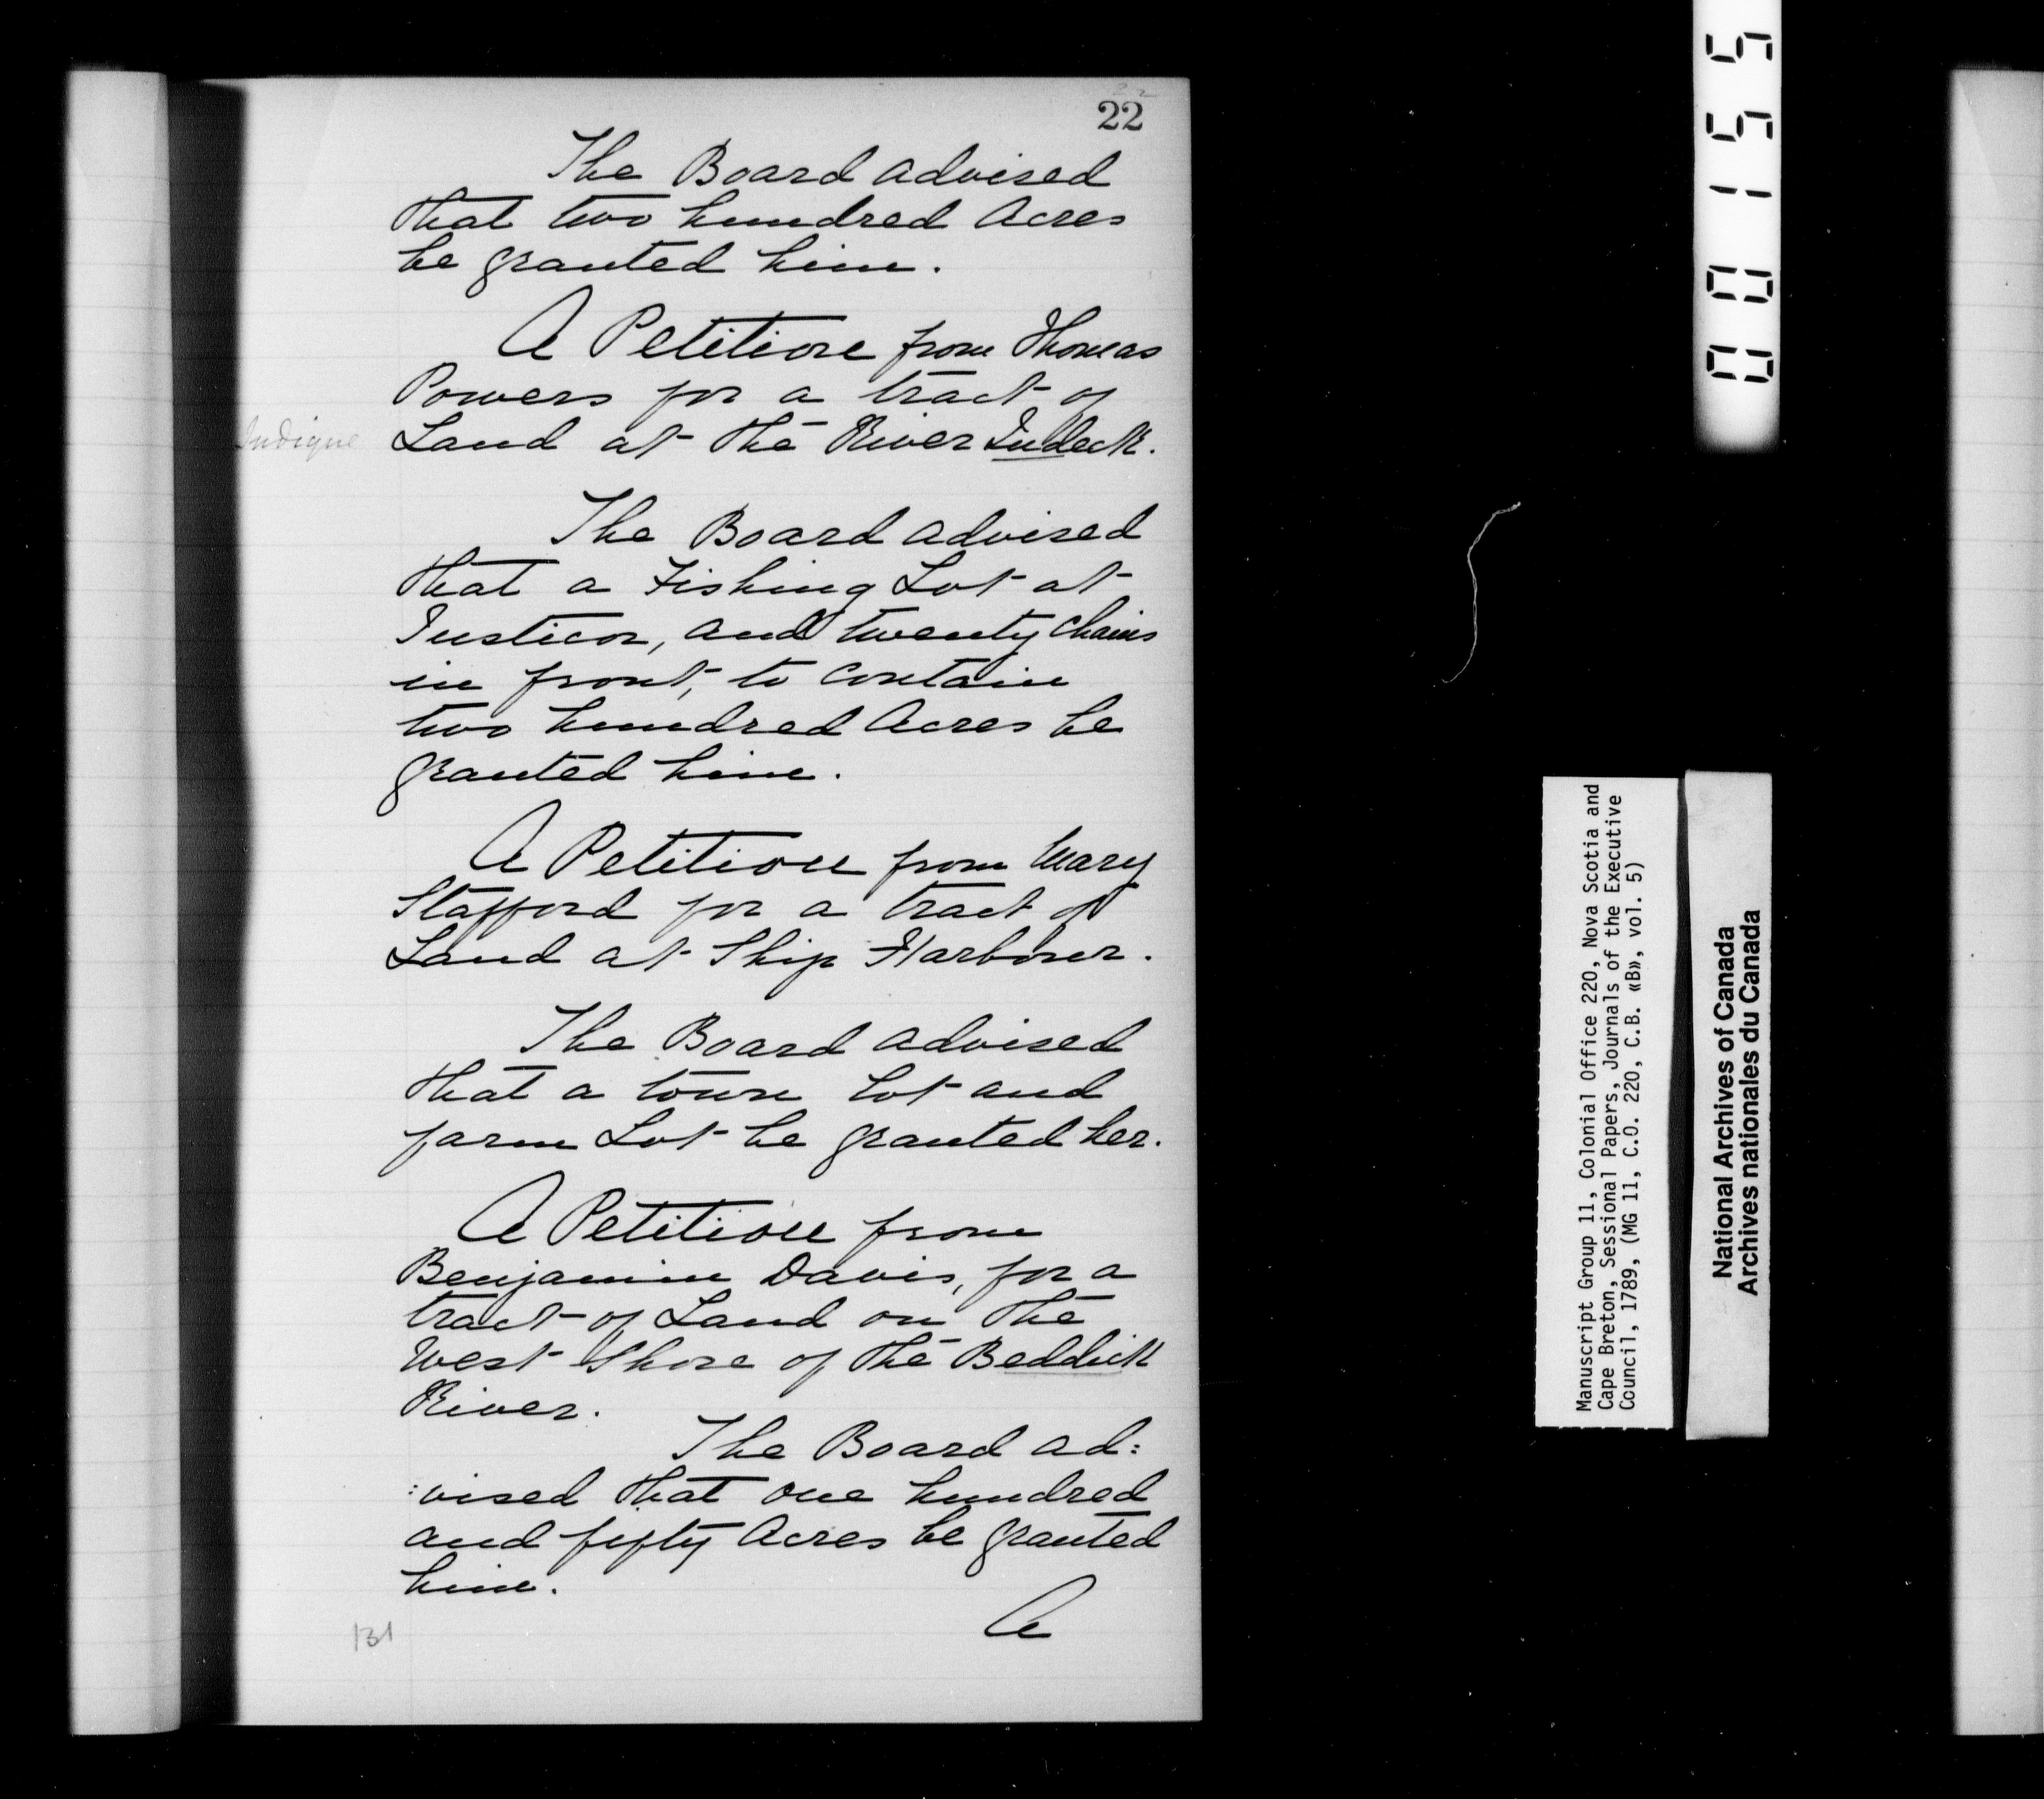 22
The Board advised
that two hundred Acres
be granted him.
A Petition from Thomas
Powers for a tract of
Indique
Land at the River Indeck.
The Board advised
that a Fishing Lot at
Justicor, and twenty Chains
in front, to contain
two hundred Acres be
granted him.
A Petition from Mary
Stafford for a tract of
Land at Ship Harbour.
The Board advised
that a town Lot and
farm Lot be granted her.
A Petition from
Benjamin Davis, for a
tract of Land on the
West Shore of the Beddick
River.
The Board ad:
:vised that one hundred
and fifty Acres be granted
him.
A
131
00155
Manuscript Group 11, Colonial Office 220, Nova Scotia and
Cape Breton, Sessional Papers, Journals of the Executive
Council, 1789, (MG 11, C.O. 220, C.B. «B», vol. 5)
National Archives of Canada
Archives nationales du Canada